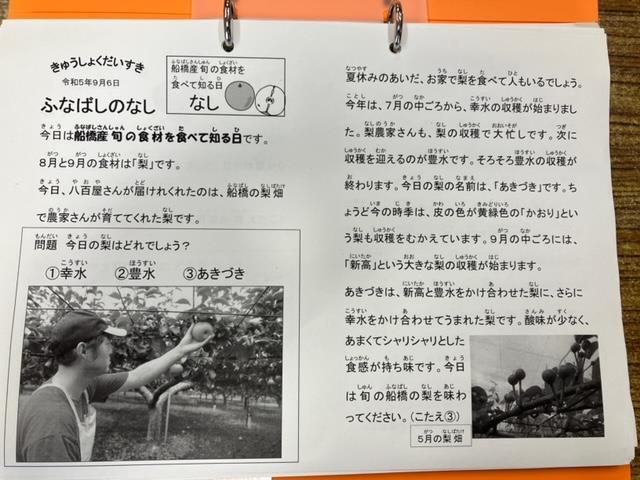 きゅうしょくだいすき
令和5年9月6日
ふなばしのなし
船橋産旬の食材を
食べて知る日
なし
今日は船橋産旬の食材を食べて知る日です。
8月と9月の食材は「梨」です。
今日、八百屋さんが届けれくれたのは、船橋の梨畑
で農家さんが育ててくれた梨です。
問題　今日の梨はどれでしょう?
①幸水　②豊水　③あきづき
夏休みのあいだ、お家で梨を食べて人もいるでしょう。
今年は、7月の中ごろから、幸水の収穫が始まりまし
た。梨農家さんも、梨の収穫で大忙しです。次に
収穫を迎えるのが豊水です。そろそろ豊水の収穫が
終わります。今日の梨の名前は、「あきづき」です。ち
ょうど今の時季は、皮の色が黄緑色の「かおり」とい
う梨も収穫をむかえています。9月の中ごろには、
「新高」という大きな梨の収穫が始まります。
あきづきは、新高と豊水をかけ合わせた梨に、さらに
幸水をかけ合わせてうまれた梨です。酸味が少なく、
あまくてシャリシャリとした
食感が持ち味です。今日
は旬の船橋の梨を味わ
ってください。(こたえ③)
5月の梨畑